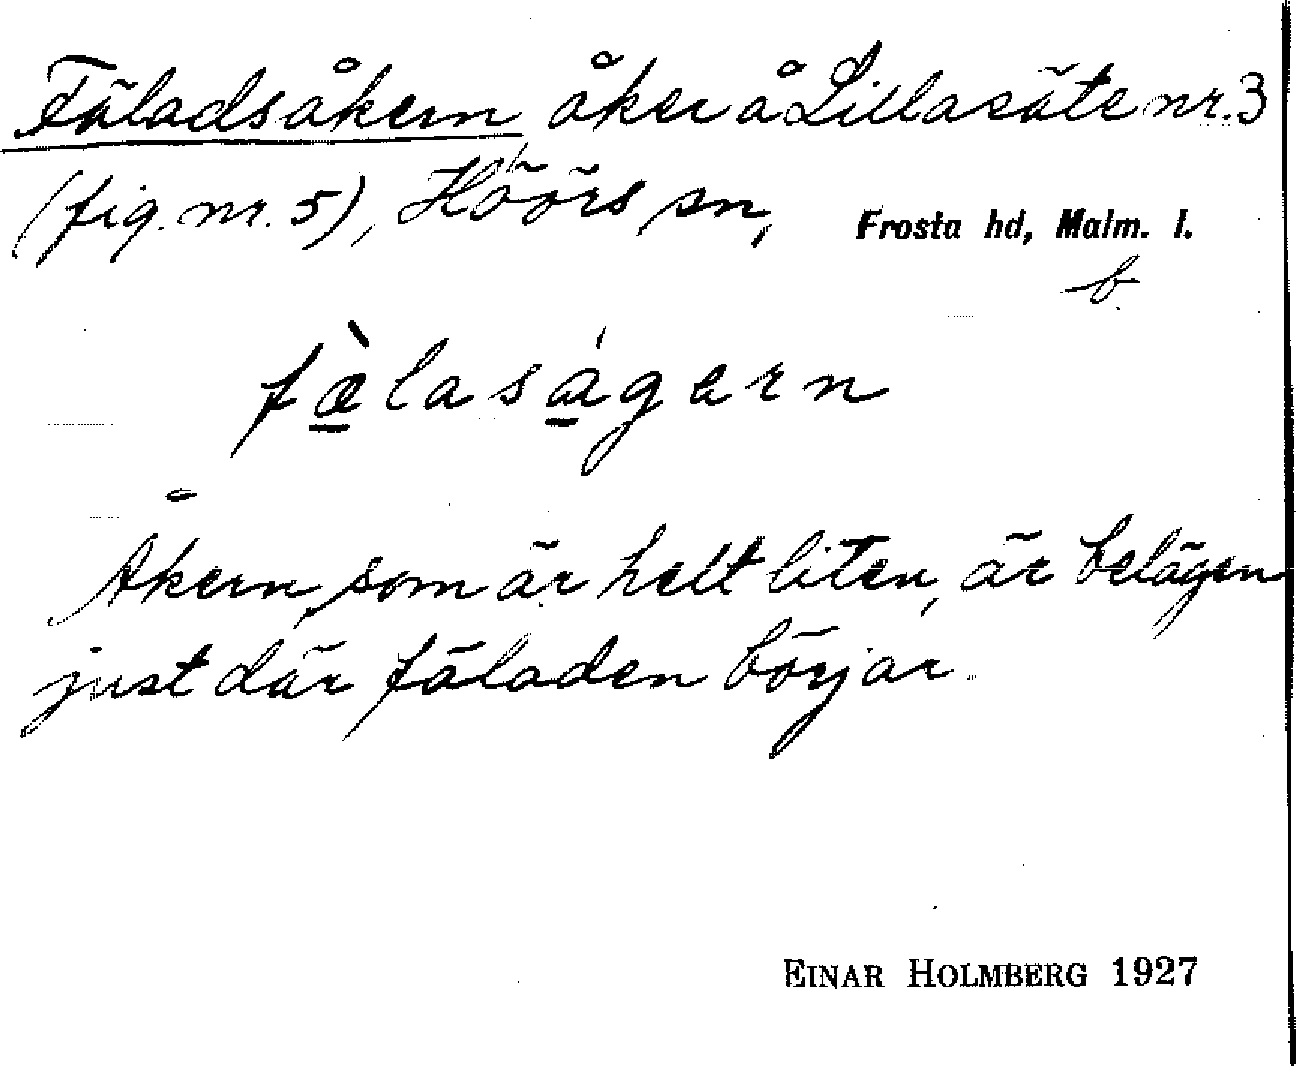 Fäladsåkern, åker å Lillasäte nr. 3
(fig. nr. 5), Höörs sn, Frosta hd, Malm. l.
b.
fæ̠̀lasá̠gern
Åkern, som är helt liten, är belägen
just där fäladen börjar.
EINAR HOLMBERG 1927